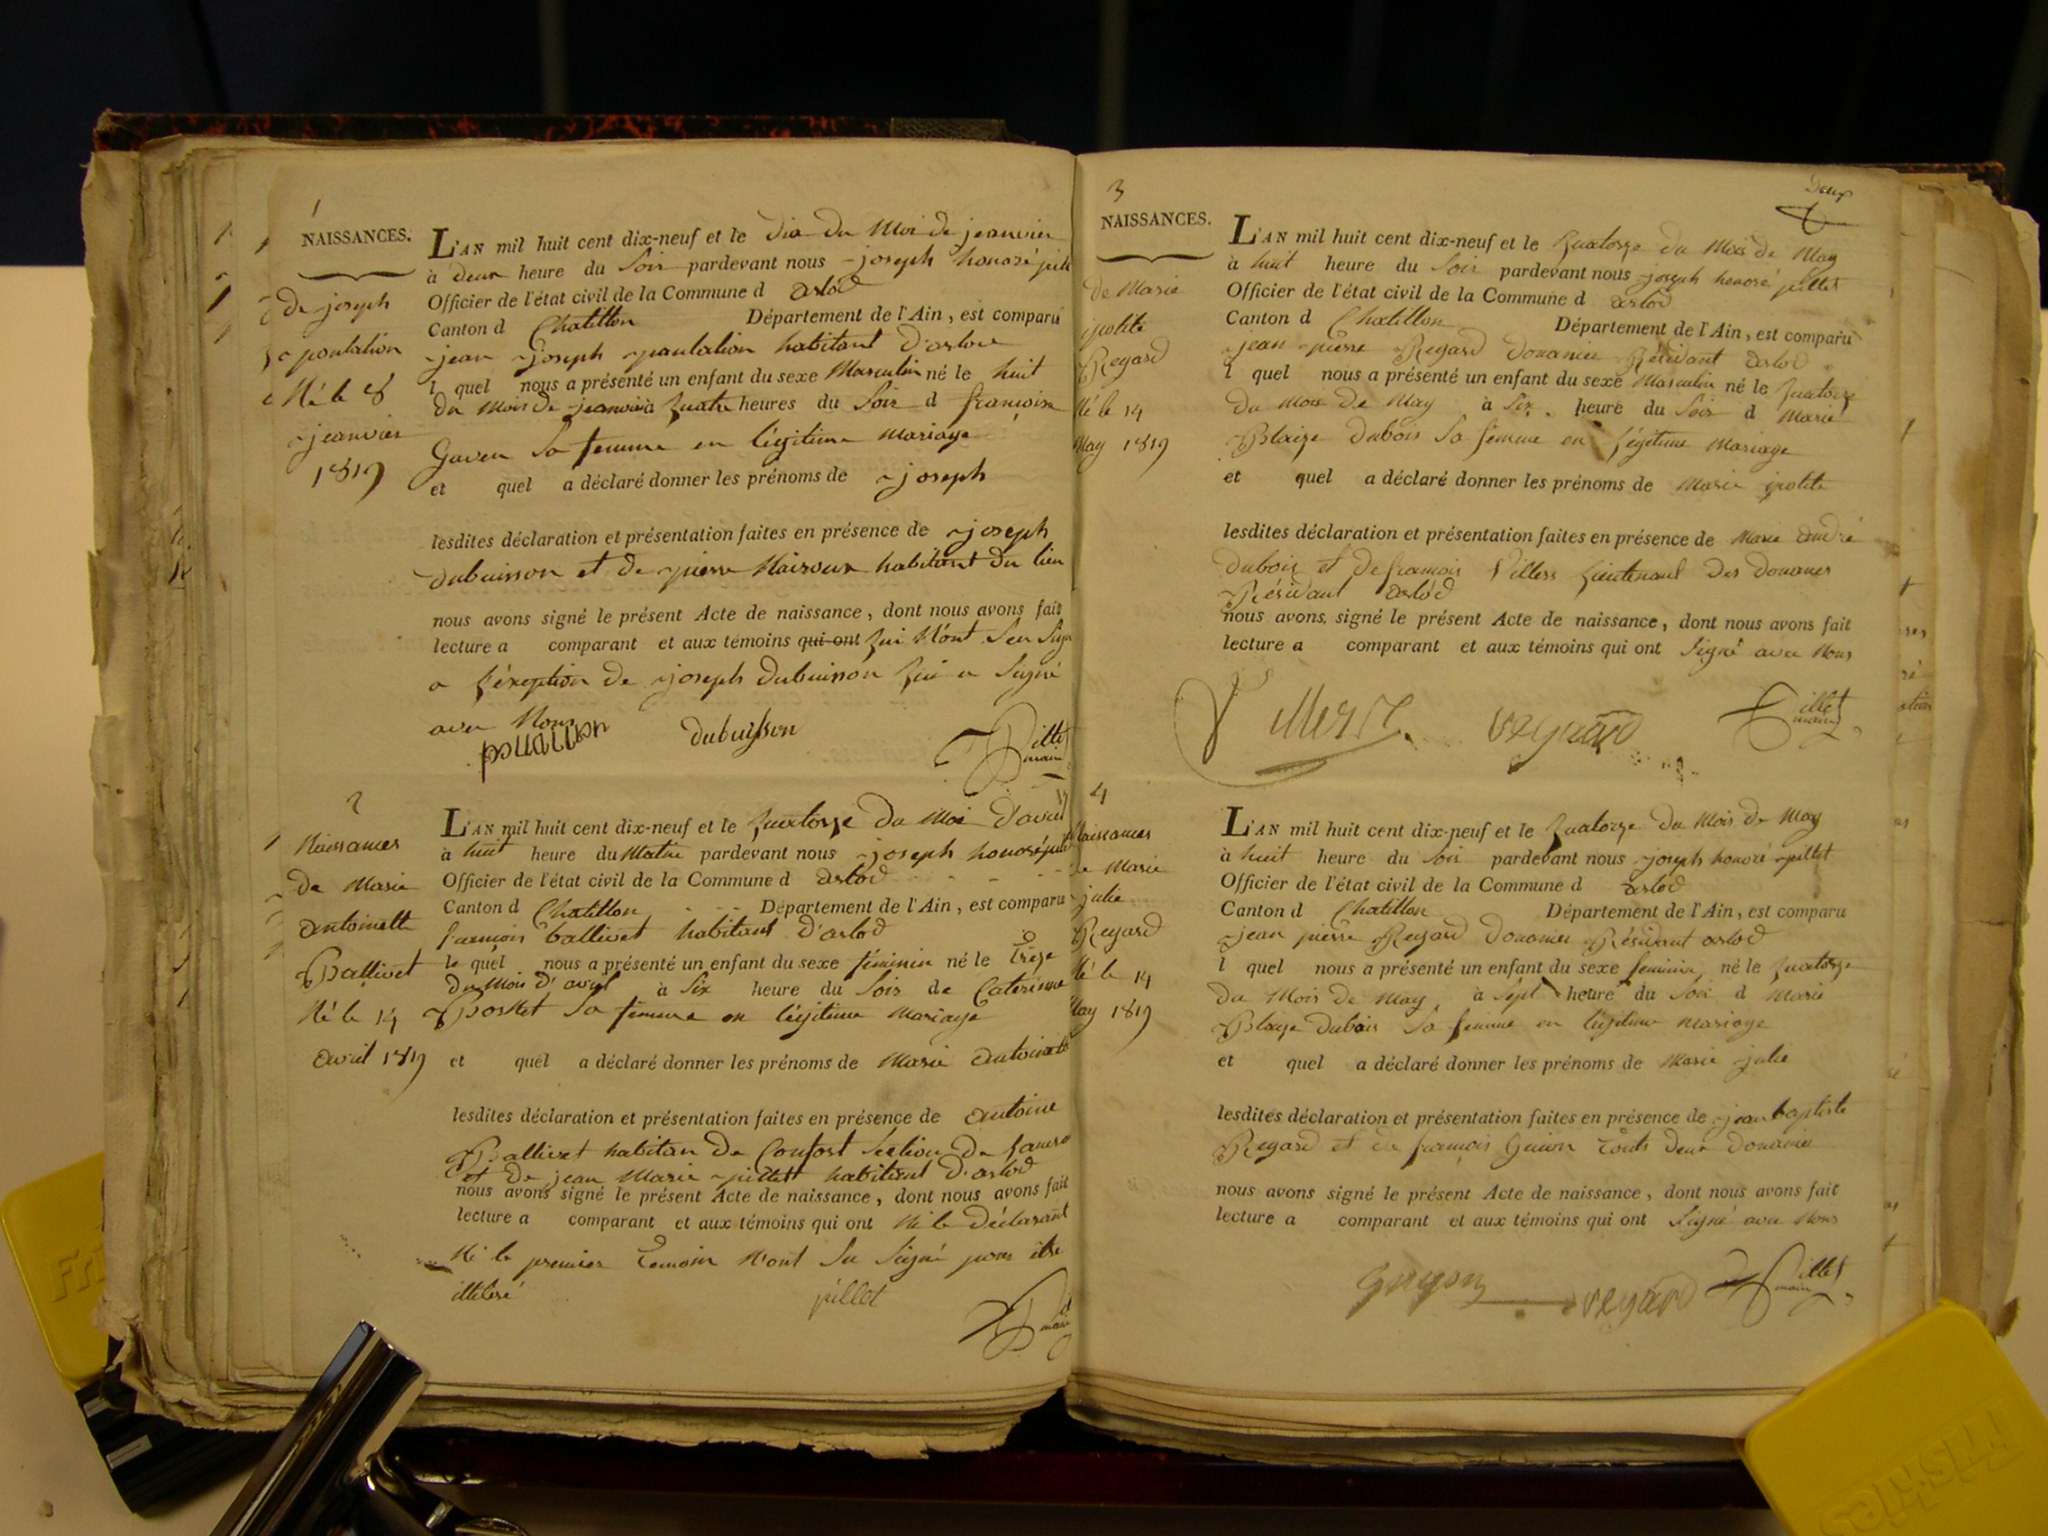 1
NAISSANCES.
de joseph
pontalion
Né le 8
jeanvier
1819
L'AN mil huit cent dix-neuf et le dix du Moi de jeanvier
à deux heure du Soir pardevant nous joseph honoré
Officier de l'état civil de la Commune d arlod
Canton d Chatillon Département de l'Ain, est comparu
jean joseph pantalion habitant d'arlod
l quel nous a présenté un enfant du sexe Masculin né le huit
du Mois de jeanvier à quatre heures du Soir d françoise
Gaven Sa femme en légitime Mariage
et quel a déclaré donner les prénoms de joseph
lesdites déclaration et présentation faites en présence de joseph
dubuisson et de pierre habitant du lieu
nous avons signé le présent Acte de naissance, dont nous avons fait
lecture a comparant et aux témoins qui ont qui N'ont Seu
a l'éxeption de joseph dubuisson qui a Signé
avec Nous
dubuisson
Pillet
maire
2
Naissances
de Marie
antoinette
Ballivet
Né le 14
avril 1819
L'AN mil huit cent dix-neuf et le quatorze du Moi d'avril
à huit heure du Matin pardevant nous joseph honoré
Officier de l'état civil de la Commune d arlod
Canton d Chatillon Département de l'Ain, est comparu
francois ballivet habitant d'arlod
le quel nous a présenté un enfant du sexe féminin né le treze
du Mois d'avril à Six heure du Soir de Caterinne
Bosket Sa femme en légitime Mariage
et quel a déclaré donner les prénoms de Marie antoinette
lesdites déclaration et présentation faites en présence de antoine
Ballivet habitan de Confort Section de
et de jean Marie pillet habitant d'arlod
nous avons signé le présent Acte de naissance, dont nous avons fait
lecture a comparant et aux témoins qui ont Ni le Déclarant
Ni le premier temoin N'ont Su Signé pour être
illiteré
pillet
3
deux
NAISSANCES.
de Marie
ipolite
Regard
Né le 14
May 1819
L'AN mil huit cent dix-neuf et le quatorze du Moi de May
à huit heure du Soir pardevant nous joseph honoré pillet
Officier de l'état civil de la Commune d arlod
Canton d Chatillon Département de l'Ain, est comparu
jean pierre Regard douanier Résidant arlod
l quel nous a présenté un enfant du sexe Masculin né le quatorze
du Mois de May à Six heure du Soir d Marie
Blaize dubois Sa femme en légitime Mariage
et quel a déclaré donner les prénoms de Marie ipolite
lesdites déclaration et présentation faites en présence de Marie andré
dubois et de francois Villers lieutenant des douanes
Résidant arlod
nous avons signé le présent Acte de naissance, dont nous avons fait
lecture a comparant et aux témoins qui ont Signé avec Nous
regard
Pillet
maire
4
Naissances
de Marie
julie
Regard
Né le 14
May 1819
L'AN mil huit cent dix-neuf et le quatorze du Mois de May
à huit heure du Soir pardevant nous joseph honoré pillet
Officier de l'état civil de la Commune d arlod
Canton d Chatillon Département de l'Ain, est comparu
jean pierre Regard douanier Résidant arlod
l quel nous a présenté un enfant du sexe feminin né le quatorze
du Mois de May à Sept heure du Soir d Marie
Blaize dubois Sa femme en légitime Mariage
et quel a déclaré donner les prénoms de Marie julie
lesdites déclaration et présentation faites en présence de jean baptiste
Regard et de françois Guion touts deux douanier
nous avons signé le présent Acte de naissance, dont nous avons fait
lecture a comparant et aux témoins qui ont Signé avec Nous
Guyon regard Pillet
maire
Friskies